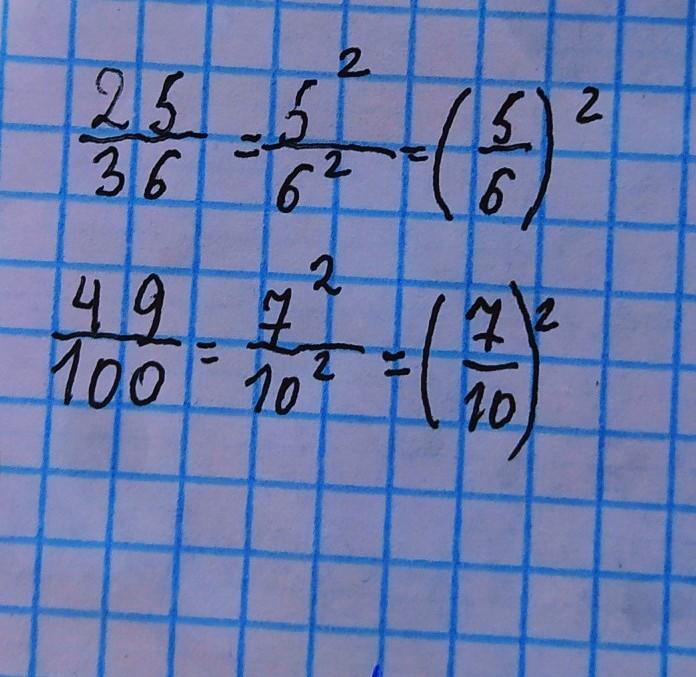 25/36 = 5²/6² = (5/6)²
49/100 = 7²/10² = (7/10)²